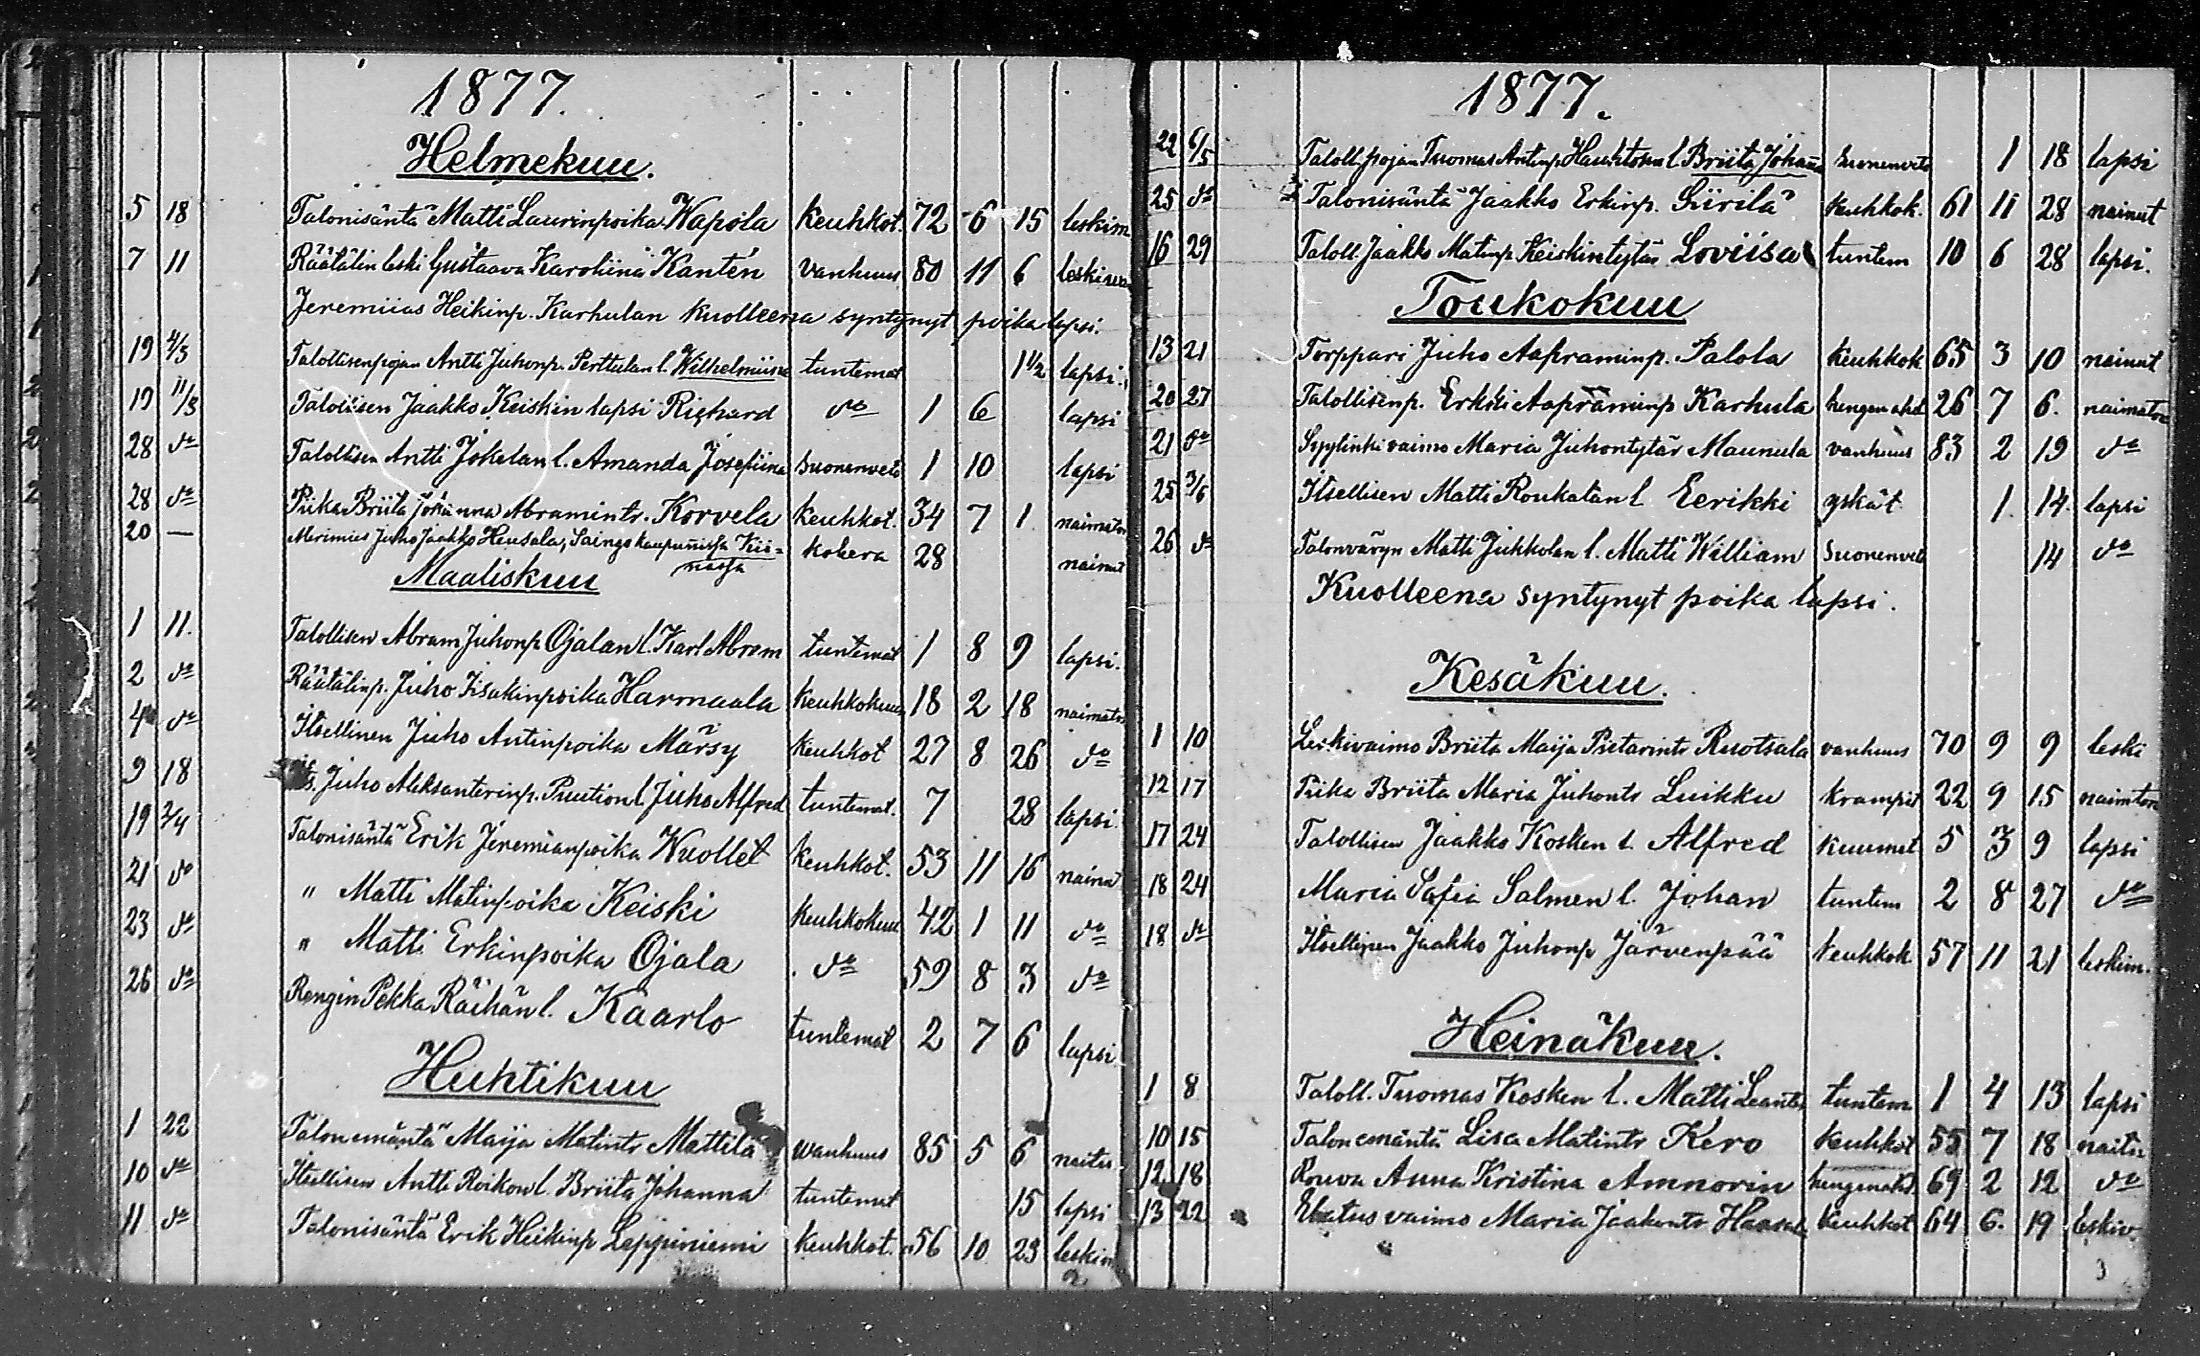 1877.
Helmekuu.
5 18 Talonisäntä Matti Laurinpoika Wapola keuhkot. 72 6 15 leskim
7 11 Räätälin leski Gustaava Karoliina Kantén vanhuus 80 11 6
Jeremiias Heikinp. Karhulan kuolleena syntynyt poika lapsi.
19 4/3 Talollisenpojan Antti Juhonp. Perttulan l. Wilhelmiina tuntemat 1½ lapsi.
19 11/3 Talollisen Jaakko Keiskin lapsi Richard do 1 6 lapsi
28 do Talollisen Antti Jokelan l. Amanda Josefiina suonenveto 1 10 lapsi
28 do Piika Briita Johanna Abramintr. Korvela keuhkot. 34 7 1 naimaton
20 — Merimies Juho Jaakko Heusala, kaupunissa Kii=
nassa kolera 28 nainut
Maaliskuu
1 11. Talollisen Abram Juhonp Ojalan l. Karl Abram tuntemat 1 8 9 lapsi.
2 do Räätälinp. Juho Iisakinpoika Harmaala keuhkokuu 18 2 18 naimato
4 do Itsellinen Juho Antinpoika Märsy keuhkot 27 8 26 do
9 18 Its. Juho Aleksanterinp. l. Juho Alfred tuntemat. 7 28 lapsi
19 2/4 Talonisäntä Erik Jeremianpoika Wuollet keuhkot. 53 11 16 nainut
21 do " Matti Matinpoika Keiski keuhkokuu 42 1 11 do
23 do " Matti Erkinpoika Ojala do 59 8 3 do
26 do Rengin Pekka Räihän l. Kaarlo tuntemat 2 7 6 lapsi
Huhtikuu
1 22 Talonemäntä Maija Matintr Mattila wanhuus 85 5 6 naitu
10 do Itsellisen Antti Roikon l. Briita Johanna tuntemat 15 lapsi
11 do Talonisäntä Erik Heikinp Leppiniemi keuhkot. 56 10 23 leskim
2
1877.
22 6/5 Taloll. pojan Tuomas Antinp l. Briita Johanna suonenveto 1 18 lapsi
25 do Talonisäntä Jaakko Erkinp. Siirilä keuhkok. 61 11 28 nainut
16 29 Taloll. Jaakko Matinp Keiskintytär Loviisa tuntem 10 6 28 lapsi.
Toukokuu
13 21 Torppari Juho Aapraminp. Palola keuhkok 65 3 10 nainut
20 27 Talollisenp. Erkki Aapraminp Karhula hengenahd 26 7 6. naimaton
21 do vaimo Maria Juhontytär Maunula vanhuus 83 2 19 do
25 3/6 Itsellisen Matti Roukalan l Eerikki yskät 1 14 lapsi
26 do Talonväryn Matti Jukkolan l. Matti William suonenvet 14 do
Kuolleena syntynyt poika lapsi.
Kesäkuu.
1 10 Leskivaimo Briita Maija Pietarintr Ruotsala vanhuus 70 9 9 leski
12 17 Piika Briita Maria Juhontr Luikku krampit 22 9 15 naimton
17 24 Talollisen Jaakko Kosken l. Alfred kuumet 5 3 9 lapsi
18 24 Maria Sofia Salmen l. Johan tuntem 2 8 27 do
18 do Itsellinen Jaakko Juhonp Järvenpää keuhkok 57 11 21 leskim.
Heinäkuu.
1 8 Taloll. Tuomas Kosken l. Matti Leanter tuntem 1 4 13 lapsi
10 15 Talonemäntä Lisa Matintr Kero keuhkot 55 7 18 naitu
12 18 Rouva Anna Kristina Amnorin hengenahd 69 2 12 do
13 22 Elatus vaimo Maria Jaakontr keuhkot 64 6. 19 leskiv.
3